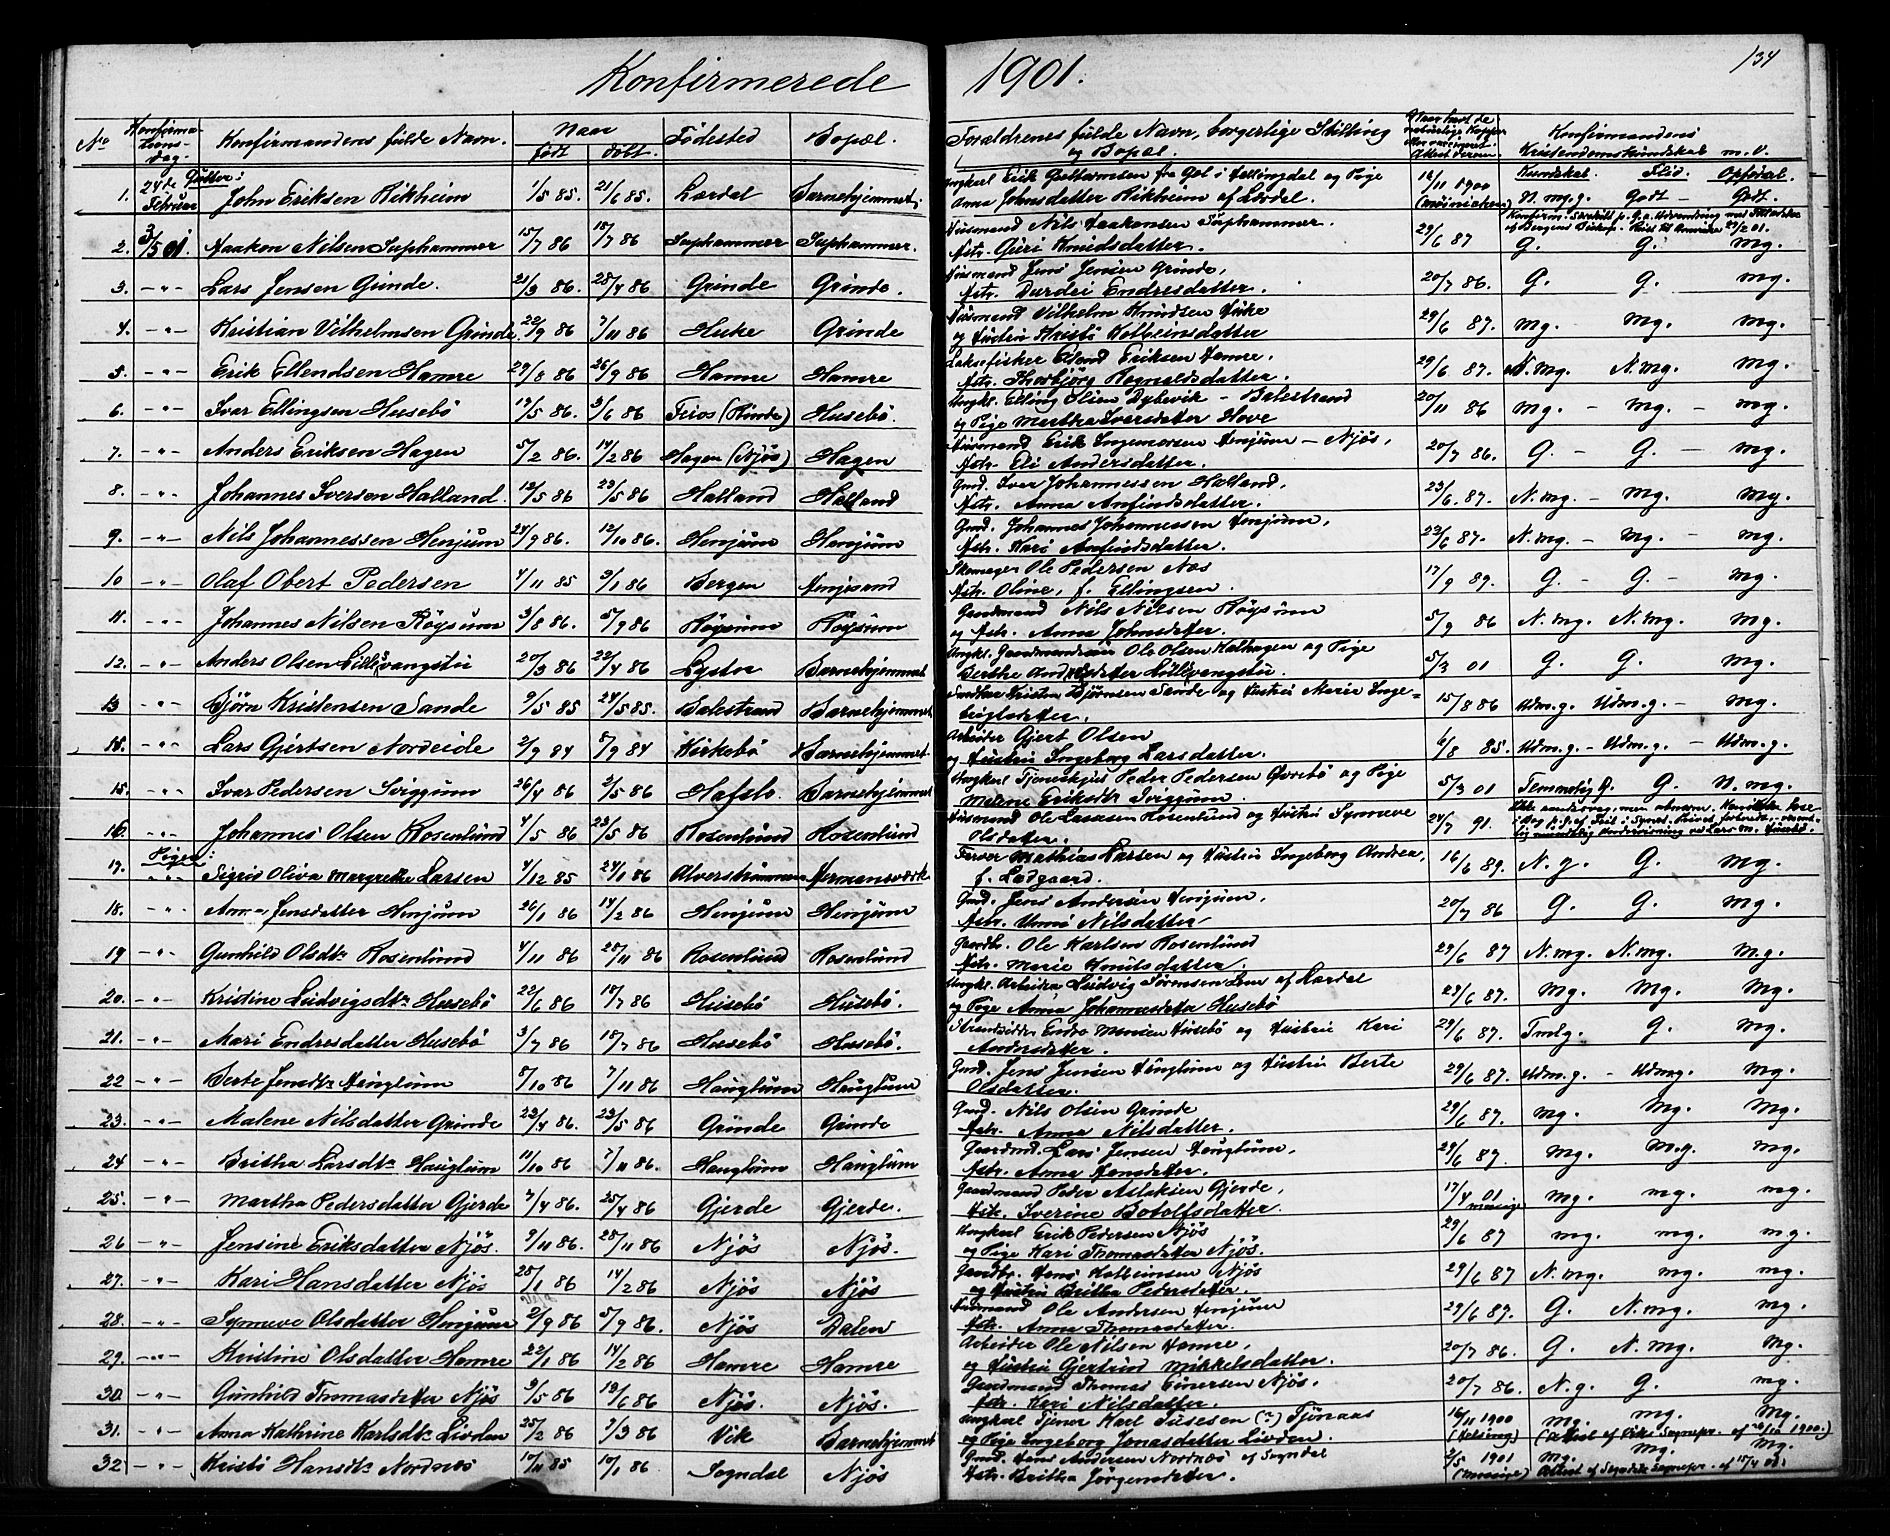 Konfirmerede 1901.
134
No Konfirma-tions-dag. Konfirmandens fulde Navn. Naar født døbt. Fødested Bopæl. Forældrenes fulde Navn, borgerlige Stilling og Bopæl. Konfirmandens Kristendomskundskab m.V.
Kundskab. Flid. Opførsel.
24de Februar Gutter:
1. John Eriksen Rikheim 1/5 85. 21/6 85. Lærdal Barnehjemmet. Ungkarl Erik Guttormsen fra Gol i Hallingdal og Pige
Anna Johnsdatter Rikheim af Lærdal. 1900 N.mg. Godt – Godt.
2. 3/5 01. Haaken Nilsen Suphammer 15/7 86 18/7 86 Suphammer Suphammer. Husmand Nils Haakensen Suphammer
Hstr. Guri Knudsdatter. 29/6 87 G. G. Mg.
3. -"- Lars Jensen Grinde. 21/3 86. 28/4 86 Grinde Grinde. Husmand Jens Jensen Grinde,
Hstr. Durdei Endresdatter. 20/7 86. G. G. Mg.
4. -"- Kristian Vilhelmsen Grinde 22/9 86 7/11 86 Huke Grinde Husmand Vilhelm Knudsen Huke
og Hustru Kristi Kolbeinsdatter 29/6 87. Mg. – Mg. Mg.
5. -"- Erik Ellendsen Hamre 29/8 86 26/9 86 Hamre Hamre Laksefisker Ellend Eriksen Hamre.
Hstr. Thorbjörg Rognaldsdatter. 29/6 87. N.Mg. N.Mg. Mg.
6. -"- Ivar Ellingsen Husebö 19/5 86. 3/6 86 Feios (Rinde) Husebö. Ungkr. Elling Olsen Dybevik – Balestrand
og Pige Martha Iversdatter Hove 20/11 86 Mg. – Mg. – Mg.
7. -"- Anders Eriksen Hagen 5/2 86. 14/2 86 Hagen (Njös) Hagen Husmand Erik Ingemorsen Henjum – Njös,
Hstr. Eli Andersdatter. 20/7 86. G. – G. – Mg.
8. -"- Johannes Iversen Halland. 12/5 86 23/5 86 Halland Halland Gmd. Ivar Johannessen Halland,
Hstr. Anna Anfindsdatter. 23/6 87. N.Mg. – Mg. Mg.
9. -"- Nils Johannessen Henjum 24/9 86. 12/10 86. Henjum Henjum Gmd. Johannes Johannessen Henjum,
Hstr. Kari Anfindsdatter. 23/6 87. N.Mg. – Mg. – Mg.
10 -"- Olaf Obert Pedersen 4/11 85 3/1 86 Bergen Henjesand Skomager Ole Pedersen Næs
Hstr. Oline, f. Ellingsen. 17/9 89. G. – G. – Mg.
11. -"- Johannes Nilsen Röysum 3/8 86. 5/9 86 Röysum Röysum Gaardmand Nils Nilsen Röysum
og Hstr. Anna Johnsdatter. 5/9 86 N.Mg. N.Mg. Mg.
12. -"- Anders Olsen Lillevangstu 20/3 86 22/4 86 Lyster Barnehjemmet Ole Olsen Kalhagen og Pige
Berthe Lillevangstu. 5/3 01 G. G. Mg.
13 -"- Bjørn Kristensen Sande 9/5 85 24/5 85. Balestrand Barnehjemmet. Kristen Bjørnsen Sande og Hustru Marie Inge-
brigtsdatter. 15/8 86 Udm.g. Udm.g. – Mg.
14. -"- Lars Gjertsen Nordeide 2/9 84 8/9 84 Kirkebö Barnehjemmet. Arbeider Gjert Olsen
og Hustru Ingeborg Larsdatter. 6/8 85. Udm.g. – Udm.g. – Udm.g.
15. -"- Ivar Pedersen Sviggum 26/4 86 2/5 86 Hafslo. Barnehjemmet Ungkarl Peder Pedersen Øvrebö og Pige
Malene Eriksdtr Sviggum. 5/3 01 Temmelig G. G. N.mg.
16. -"- Johannes Olsen Rosenlund 4/5 86 23/5 86 Rosenlund Rosenlund Husmand Ole Larssen Rosenlund og Hustru Synneve
Olsdatter. 24/7 91.
Piger:
17. -"- Sigrid Oliva Margrethe Larsen 4/12 85 24/1 86 Alverströmmen Hermansværk Farver Mathias Larsen og Hustru Ingeborg Andrea,
f. Ladgaard. 16/6 89. N.g. G. Mg.
18. -"- Anna Jensdatter Henjum 26/1 86 14/2 86 Henjum Henjum Gmd. Jens Andersen Henjum,
Hstr. Unni Nilsdatter 20/7 86 G. G. Mg.
19 -"- Gunhild Olsdtr Rosenlund 4/11 86 28/11 86 Rosenlund Rosenlund Gaardbr. Ole Karlsen Rosenlund
Hstr. Marie Knutsdatter. 29/6 87 N.Mg. N.Mg. M.g.
20. -"- Kristine Ludvigsdtr Husebö 22/6 86 18/7 86 Husebö Husebö. Ungk. Arbeider Ludvig Sörensen Lem af Lærdal
og Pige Anna Johannesdatter Husebö 23/6 87. Mg. Mg. Mg.
21. -"- Mari Endresdatter Husebö 3/7 86 18/7 86 Husebö Husebö. Strandsidder Endre Monsen Husebö og Hustru Kari
Andersdatter. 29/6 87. Tmlg. G. Mg.
22 -"- Berte Jensdtr Hauglum 8/10 86 7/11 86 Hauglum Hauglum Gmd. Jens Jensen Hauglum og Hustru Berte
Olsdatter. 29/6 87. Udm.g. – Udmg. Mg.
23. -"- Malene Nilsdatter Grinde 23/4 86. 23/5 86 Grinde Grinde Gmd. Nils Olsen Grinde
Hstr. Anna Nilsdatter. 29/6 87. Mg. Mg. Mg.
24 -"- Britha Larsdtr Hauglum 11/10 86 7/11 86. Hauglum Hauglum Gaardmd. Lars Jensen Hauglum,
Hstr. Anna Hansdatter. 29/6 87. Mg. M.g. Mg.
25. -"- Martha Pedersdatter Gjerde 7/4 86. 25/4 86 Gjerde Gjerde. Gaardmand Peder Aslaksen Gjerde,
Hstr. Sverine Botolfsdatter. 17/4 01 Mg. Mg. Mg.
26 -"- Jensine Eriksdatter Njös. 9/11 86. 28/11 86 Njös Njös. Ungkarl Erik Pedersen Njös
og Pige Kari Thomasdatter Njös. 29/6 87 Mg. Mg. Mg.
27. -"- Kari Hansdatter Njös 28/1 86 14/2 86 Njös Njös Gaardbr. Hans Kolbeinsen Njös
og Hustru Britha Pedersdatter. 29/6 87 N.Mg. Mg. Mg.
28. -"- Synneve Olsdatter Henjum 2/9 86 5/9 86. Njös Dalen Husmand Ole Andersen Henjum
Hstr. Anna Thomasdatter. 29/6 87. G. N.Mg. Mg.
29. -"- Kristine Olsdatter Hamre 22/1 86 14/2 86 Hamre Hamre Arbeider Ole Nilsen Hamre,
og Hustru Gjertrud Mikkelsdatter. 20/7 86. G. N.Mg. Mg.
30. -"- Gunhild Thomasdatter Njös 9/5 86 13/6 86 Njös. Njös. Gaardmand Thomas Einersen Njös.
Hstr. Kari Nilsdatter. 20/7 86. N.g. G. Mg.
31. -"- Anna Kathrine Karlsdtr Livden 25/2 86 7/3 86 Vik Barnehjemmet Ungkarl Tjener Karl (?) Tjönaas
og Pige Ingeborg Jonasdatter Livden. 16/11 1900 Mg. Mg. Mg.
(Attest af Viks Sognepr. af 1900.)
32 -"- Kristi Hansdtr Nordnæs 10/11 85 10/1 86 Sogndal Njös Gmd. Hans Andersen Nordnæs af Sogndal
Hstr. Britha Jörgensdatter. 2/5 1901 Mg. Mg. Mg.
Attest af Sogndals Sognepr. af 15/4 01.